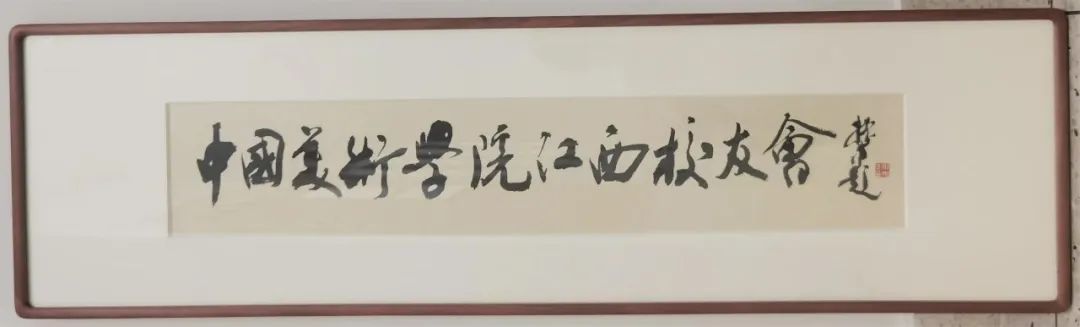 中國美術學院江西校友會
題